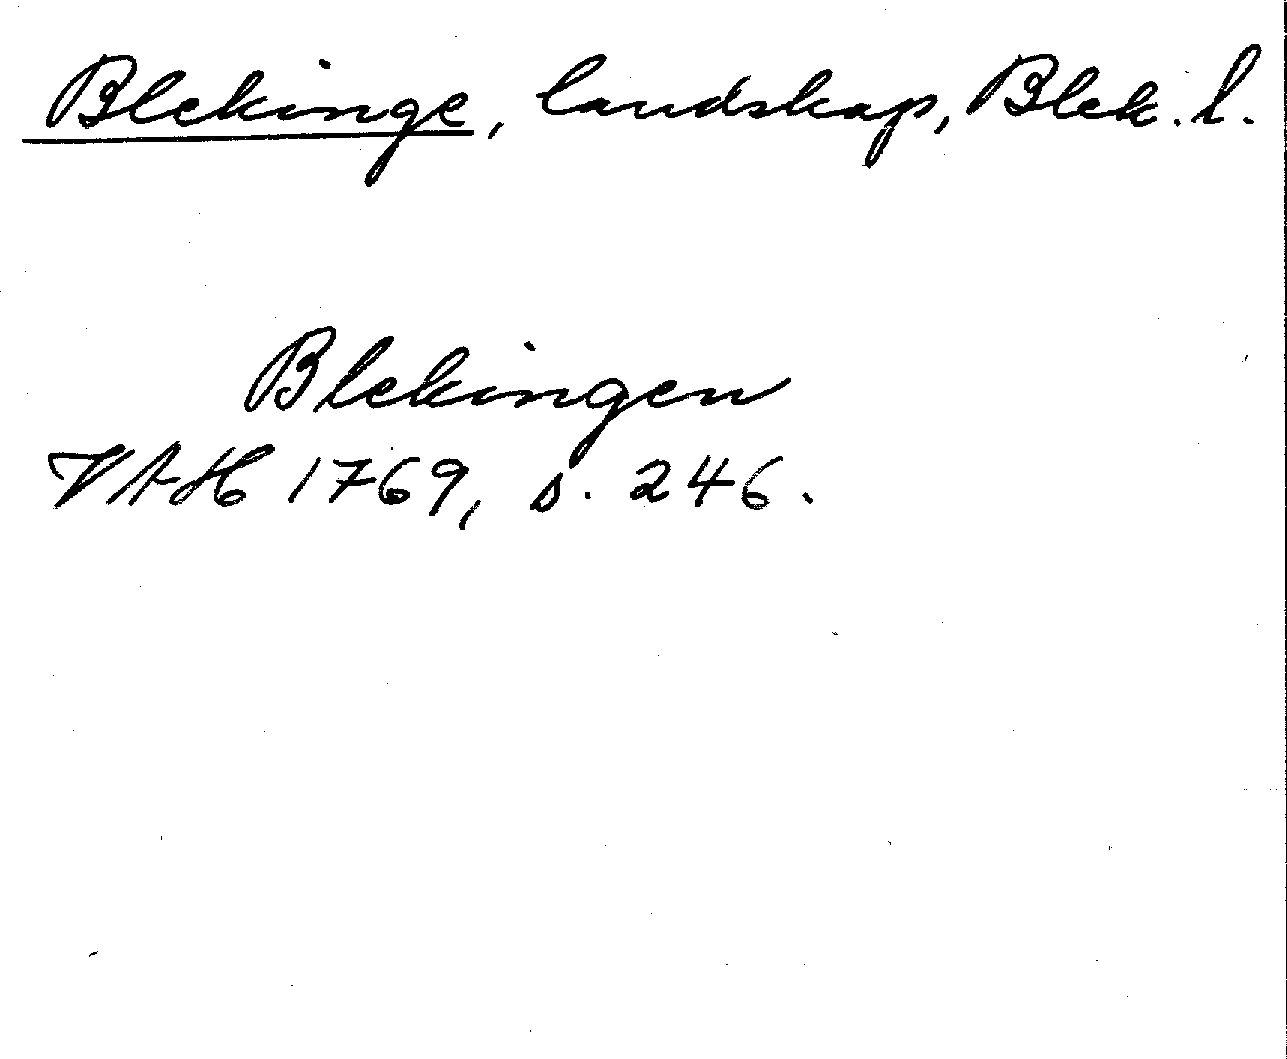 Blekinge, landskap, Blek. l.
Blekingen
VAH 1769, s. 246.